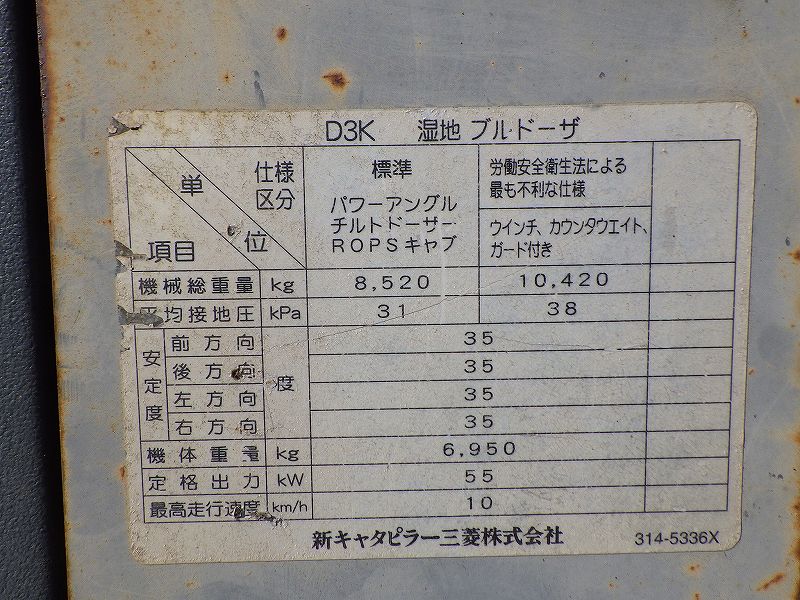 D3K 湿地 ブルドーザ
単位
仕様区分
項目
標準
パワーアングル
チルトドーザー
ROPSキャブ
労働安全衛生法による
最も不利な仕様
ウインチ、カウンタウエイト、
ガード付き
機械総重量 kg 8,520 10,420
平均接地圧 kPa 31 38
安定度 度
前方向 35
後方向 35
左方向 35
右方向 35
機体重量 kg 6,950
定格出力 kW 55
最高走行速度 km/h 10
新キャタピラー三菱株式会社 314-5336X